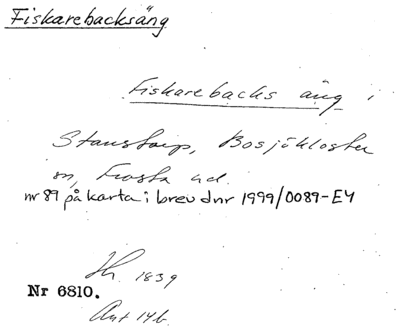 Fiskarebacksäng
Fiskarebacks äng i
Stanstorp, Bosjökloster
sn, Frosta hd.
nr 89 på karta i brev dnr 1999/0089-E4
1839
Nr 6810.
Avt 14b.